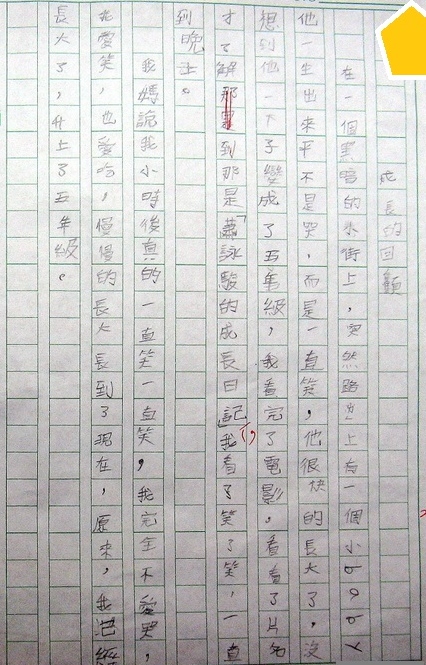 成長的回顧
在一個黑暗的 街上,突然路 上有一個小baby
他一出來平不是哭,而是一直笑,他很快的長大了,沒
想到他一下子變成了五年級,我看完了電影,看看了片名
才了解 到那是「蕭詠駿的成長日記」,我看了笑了笑,一直
到晚上。
我媽說我小時後真的一直笑一直笑,我完全不愛哭,
我愛笑,也愛吃,慢慢的長大長到了現在,原來,我已經
長大了,升上了五年級。